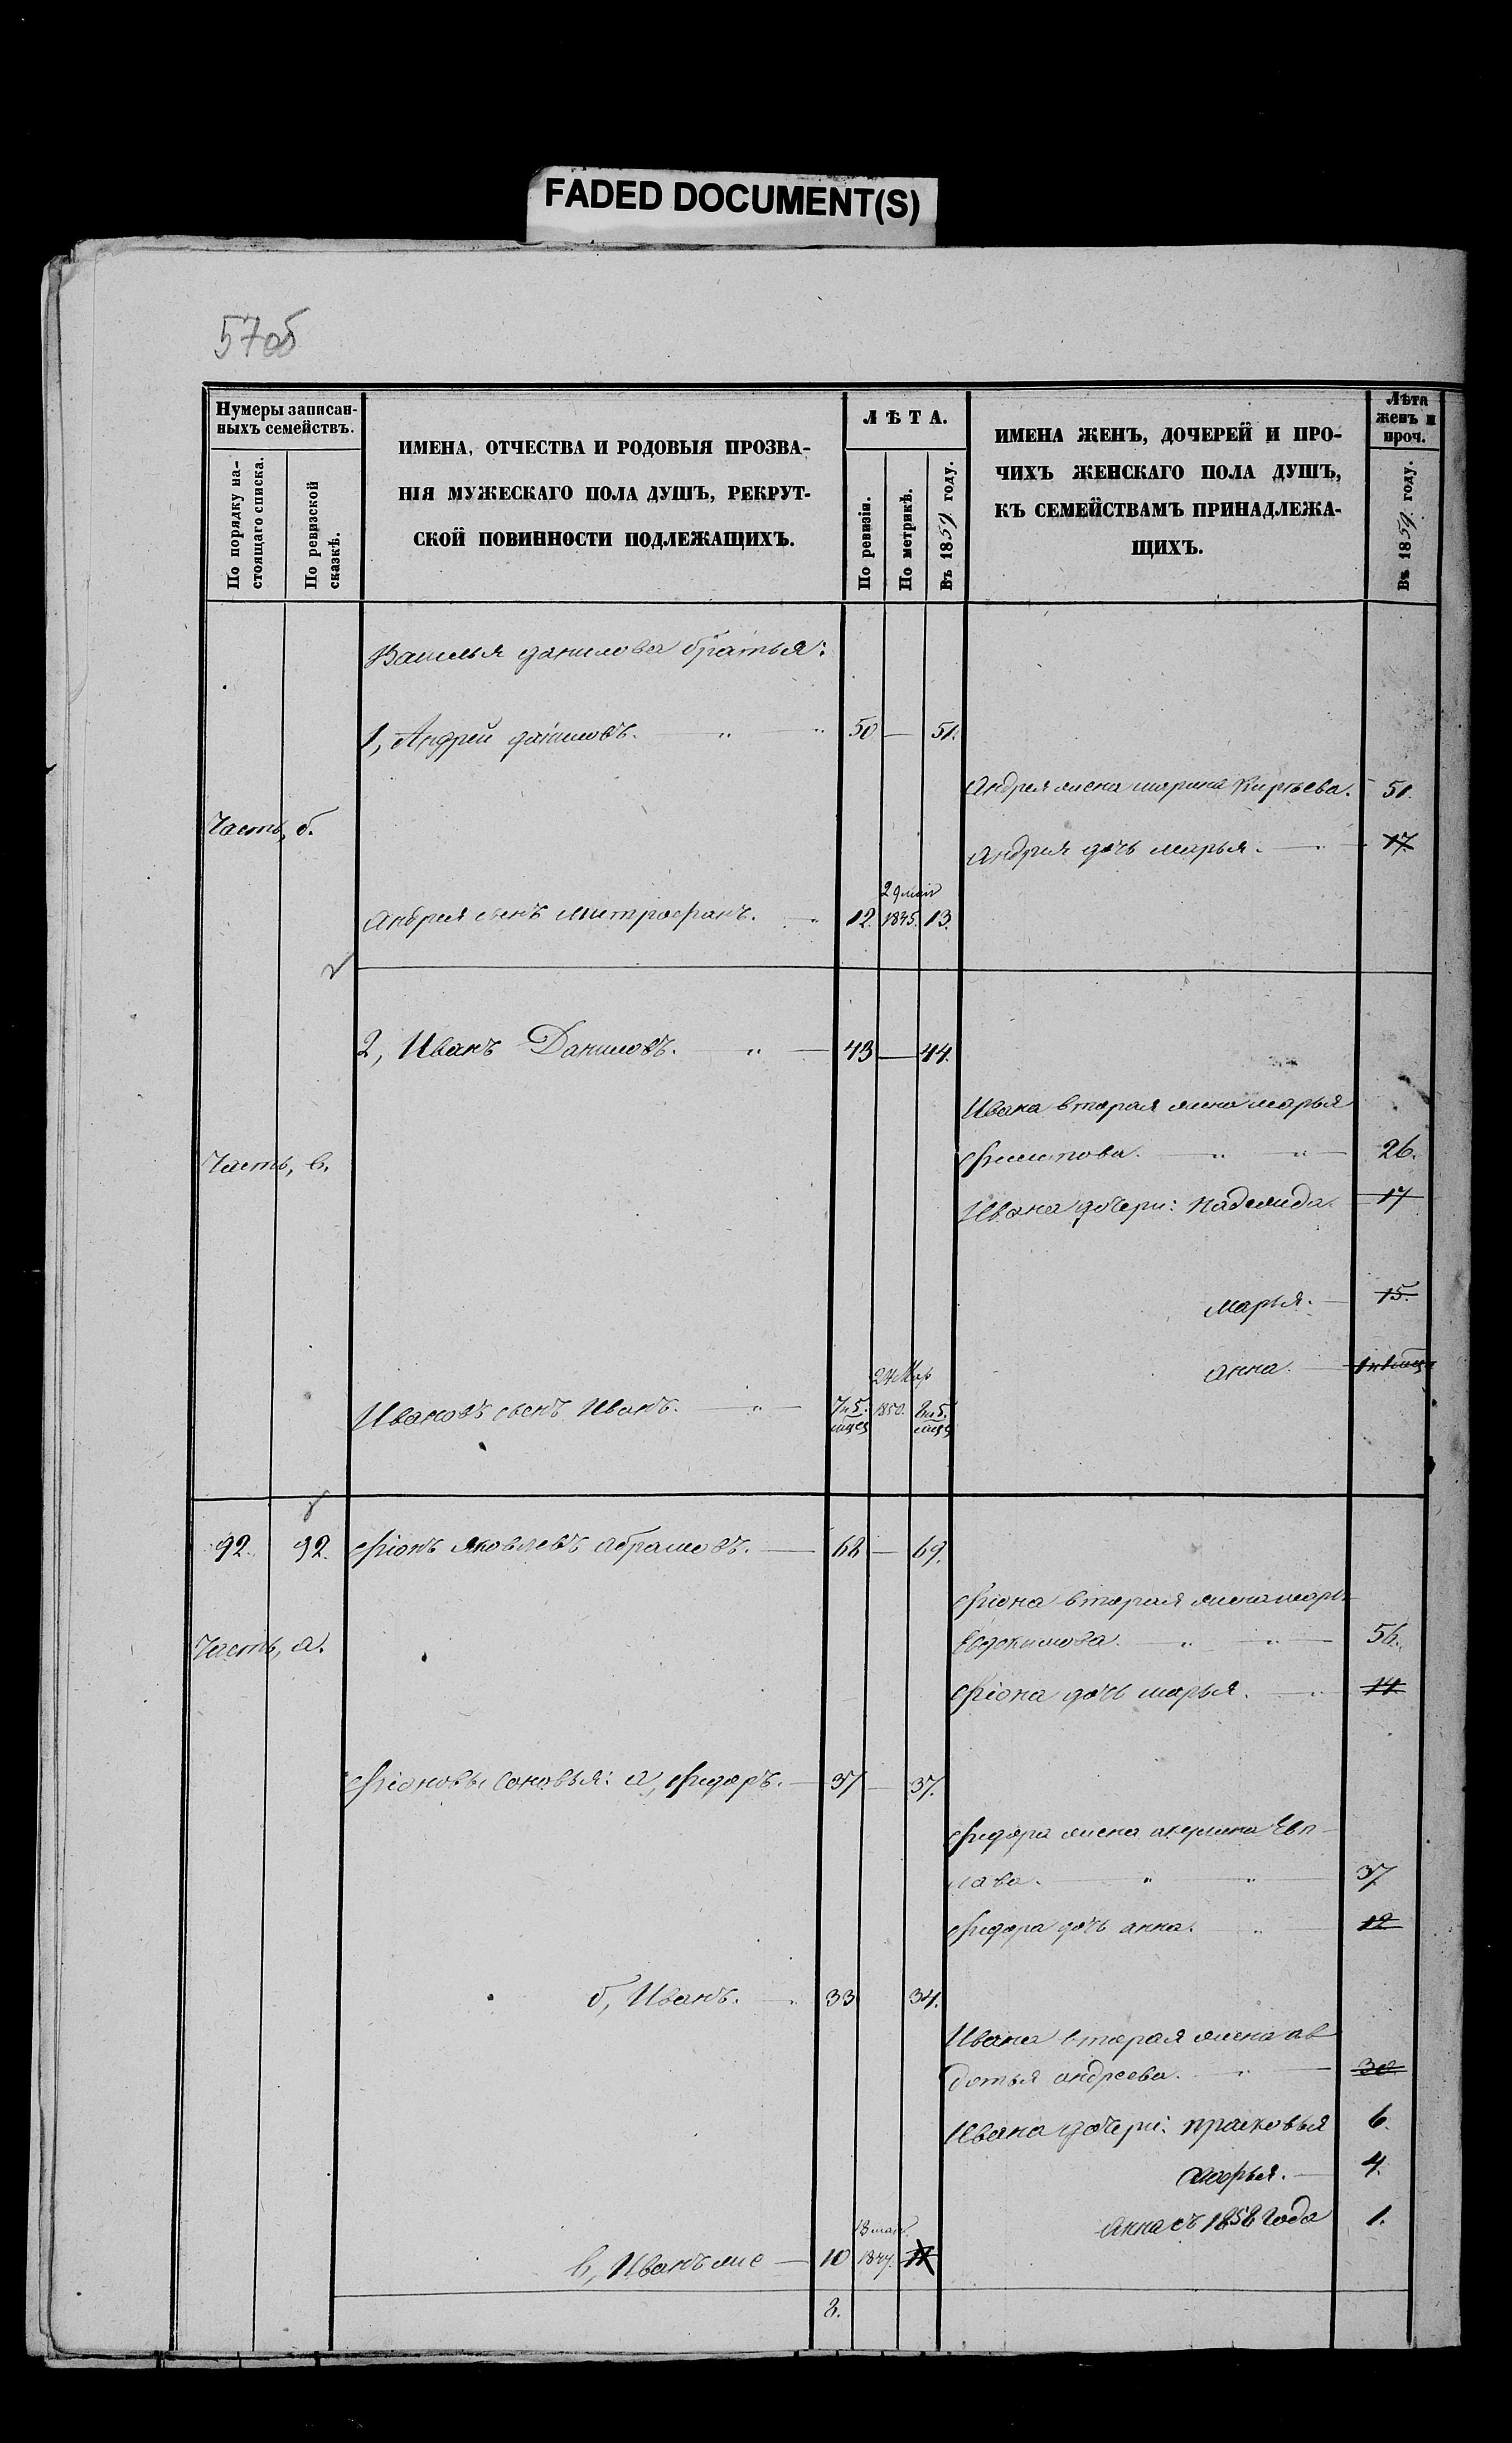 FADED DOCUMENT(S)
57об
Нумеры записан-
ныхъ семействъ.
По порядку на-
стоящаго списка.
По ревизской
сказкѣ.
ИМЕНА, ОТЧЕСТВА И РОДОВЫЯ ПРОЗВА-
НІЯ МУЖЕСКАГО ПОЛА ДУШЪ, РЕКРУТ-
СКОЙ ПОВИННОСТИ ПОДЛЕЖАЩИХЪ.
ЛѢТА.
По ревизіи.
По метрикѣ.
Въ 1859 году.
ИМЕНА ЖЕНЪ, ДОЧЕРЕЙ И ПРО-
ЧИХЪ ЖЕНСКАГО ПОЛА ДУШЪ,
КЪ СЕМЕЙСТВАМЪ ПРИНАДЛЕЖА-
ЩИХЪ.
Лѣта
женъ и
проч.
Въ 1859 году.
Василья данилова братья:
1, Андрей даниловъ. 50 — 51.
Андрея жена марина Киръева. 51.
Часть, б.
Андрея дочь марья. 17.
29 мая
Андрея сынъ митрофанъ. 12. 1845. 13.
2, Иванъ Даниловъ. 43 — 44.
Ивана вторая жена марья
Часть, в.
филипова. 26.
Ивана дочери: надежда. 17
марья. 15.
анна.
24 Мар
Ивановъ сынъ Иванъ. 7и5. мцев 1850. 8и5. мцев
92. 92. фіонъ яковлевъ абрамовъ. 68 — 69.
фіона вторая жена
Часть, а.
Евдокимова. 56.
фіона дочь марья. 14.
фіоновы сыновья: а, фидоръ. 37 — 37.
фидора жена акулина Евп-
лова. 37
фидора дочь анна. 12
б, Иванъ. 33 34.
Ивана вторая жена ав
дотья андреева. 30
Ивана дочери: прасковья 6.
марья. 4.
Анна съ 1858 года 1.
18 мая.
в, Иванъ же — 10 1847. 11
8.